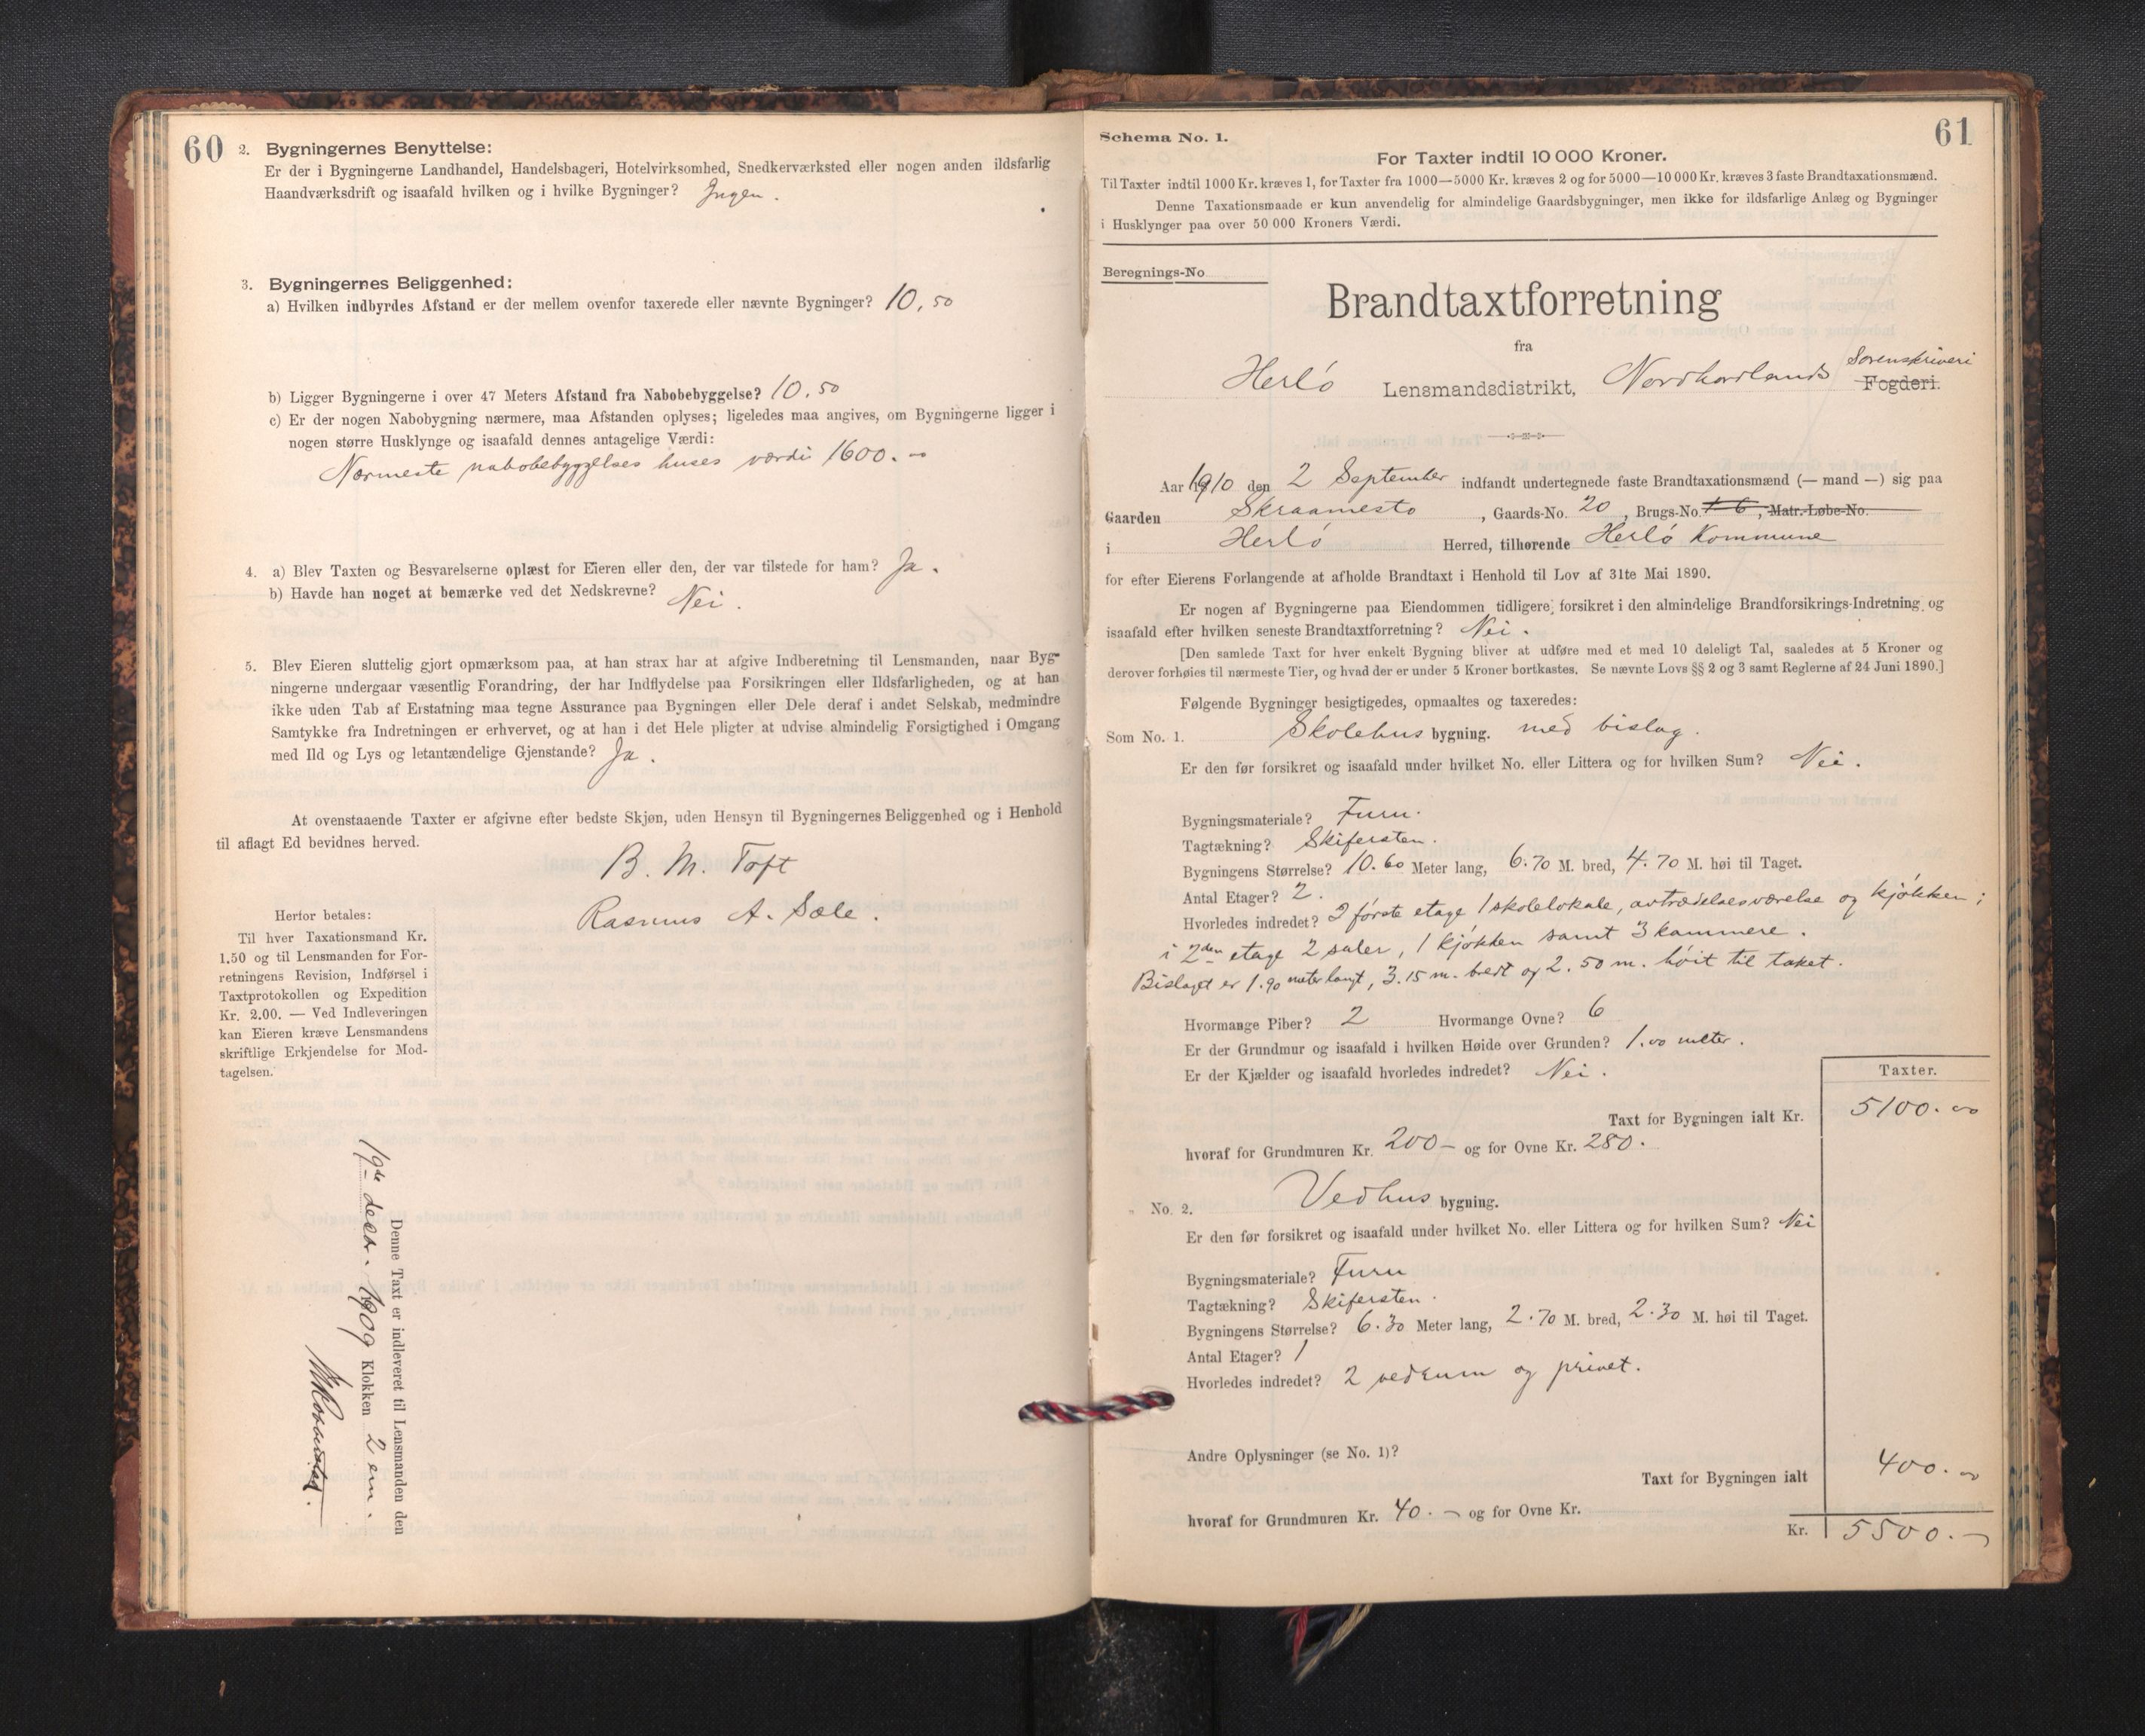 60
2. Bygningernes Benyttelse:
Er der i Bygningerne Landhandel, Handelsbageri, Hotelvirksomhed, Snedkerværksted eller nogen anden ildsfarlig
Haandværksdrift og isaafald hvilken og i hvilke Bygninger? Ingen.
3. Bygningernes Beliggenhed:
a) Hvilken indbyrdes Afstand er der mellem ovenfor taxerede eller nævnte Bygninger? 10,50
b) Ligger Bygningerne i over 47 Meters Afstand fra Nabobebyggelse? 10,50
c) Er der nogen Nabobygning nærmere, maa Afstanden oplyses; ligeledes maa angives, om Bygningerne ligger i
nogen større Husklynge og isaafald dennes antagelige Værdi:
Nærmeste nabobebyggelses huses værdi 1600.-
4. a) Blev Taxten og Besvarelserne oplæst for Eieren eller den, der var tilstede for ham? Ja.
b) Havde han noget at bemærke ved det Nedskrevne? Nei.
5. Blev Eieren sluttelig gjort opmærksom paa, at han strax har at afgive Indberetning til Lensmanden, naar Byg-
ningerne undergaar væsentlig Forandring, der har Indflydelse paa Forsikringen eller Ildsfarligheden, og at han
ikke uden Tab af Erstatning maa tegne Assurance paa Bygningen eller Dele deraf i andet Selskab, medmindre
Samtykke fra Indretningen er erhvervet, og at han i det Hele pligter at udvise almindelig Forsigtighed i Omgang
med Ild og Lys og letantændelige Gjenstande? Ja.
At ovenstaaende Taxter er afgivne efter bedste Skjøn, uden Hensyn til Bygningernes Beliggenhed og i Henhold
til aflagt Ed bevidnes herved.
B. M. Toft
Rasmus A. Sæle.
Herfor betales:
Til hver Taxationsmand Kr.
1.50 og til Lensmanden for For-
retningens Revision, Indførsel i
Taxtprotokollen og Expedition
Kr. 2.00. — Ved Indleveringen
kan Eieren kræve Lensmandens
skriftlige Erkjendelse for Mod-
tagelsen.
Denne Taxt er indleveret til Lensmanden den
19de decbr. 1909 Klokken 2 em.
61
Schema No. 1.
For Taxter indtil 10 000 Kroner.
Til Taxter indtil 1000 Kr. kræves 1, for Taxter fra 1000—5000 Kr. kræves 2 og for 5000—10 000 Kr. kræves 3 faste Brandtaxationsmænd.
Denne Taxationsmaade er kun anvendelig for almindelige Gaardsbygninger, men ikke for ildsfarlige Anlæg og Bygninger
i Husklynger paa over 50 000 Kroners Værdi.
Beregnings-No
Brandtaxtforretning
fra
Sorenskriveri
Herlö Lensmandsdistrikt, Nordhordlands Fogderi.
Aar 1910 den 2 September indfandt undertegnede faste Brandtaxationsmænd (— mand —) sig paa
Gaarden Skraamestø, Gaards-No. 20, Brugs-No. 1 6, Matr.-Løbe-No.
i Herlö Herred, tilhørende Herlö Kommune
for efter Eierens Forlangende at afholde Brandtaxt i Henhold til Lov af 31te Mai 1890.
Er nogen af Bygningerne paa Eiendommen tidligere forsikret i den almindelige Brandforsikrings-Indretning og
isaafald efter hvilken seneste Brandtaxtforretning? Nei.
[Den samlede Taxt for hver enkelt Bygning bliver at udføre med et med 10 deleligt Tal, saaledes at 5 Kroner og
derover forhøies til nærmeste Tier, og hvad der er under 5 Kroner bortkastes. Se nævnte Lovs §§ 2 og 3 samt Reglerne af 24 Juni 1890.]
Følgende Bygninger besigtigedes, opmaaltes og taxeredes:
Som No. 1. Skolehus bygning. med bislag.
Er den før forsikret og isaafald under hvilket No. eller Littera og for hvilken Sum? Nei.
Bygningsmateriale? Furu.
Tagtækning? Skifersten.
Bygningens Størrelse? 10.60 Meter lang, 6.70 M. bred, 4.70 M. høi til Taget.
Antal Etager? 2.
Hvorledes indredet? I förste etage 1 skolelokale, avtrædelsesværelse og kjökken;
i 2den etage 2 saler, 1 kjökken samt 3 kammere.
Bislaget er 1.90 meter langt, 3.15 m. bredt og 2.50 m. höit til taket.
Hvormange Piber? 2 Hvormange Ovne? 6
Er der Grundmur og isaafald i hvilken Høide over Grunden? 1.00 meter.
Er der Kjælder og isaafald hvorledes indredet? Nei.
Taxter.
Taxt for Bygningen ialt Kr. 5100.00
hvoraf for Grundmuren Kr. 200- og for Ovne Kr. 280.
" No. 2. Vedhus bygning.
Er den før forsikret og isaafald under hvilket No. eller Littera og for hvilken Sum? Nei
Bygningsmateriale? Furu
Tagtækning? Skifersten.
Bygningens Størrelse? 6.30 Meter lang, 2.70 M. bred, 2.30 M. høi til Taget.
Antal Etager? 1
Hvorledes indredet? 2 vedrum og privet.
Andre Oplysninger (se No. 1)?
Taxt for Bygningen ialt 400.00
hvoraf for Grundmuren Kr. 40.- og for Ovne Kr.
Kr. 5500.-